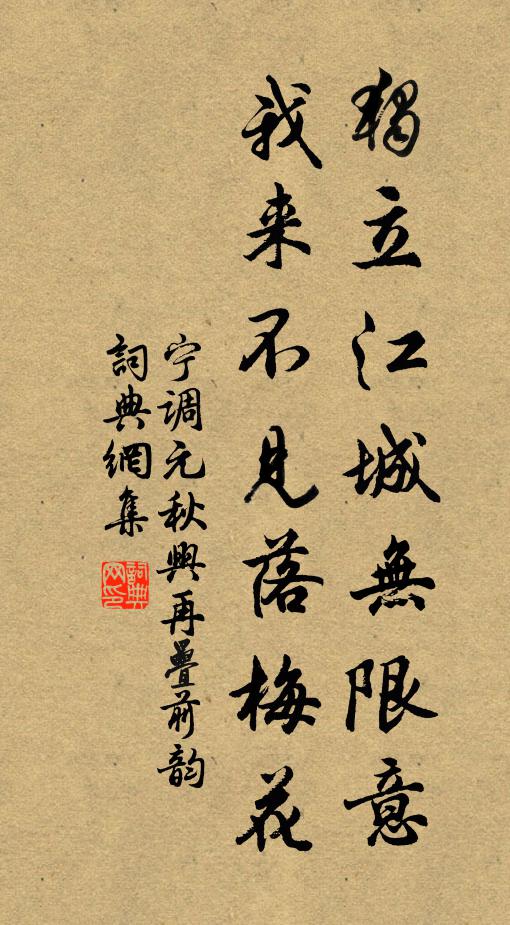 獨立江城無限意
我来不見落梅花
宁調元秋興再疊前韵
詞典網集
詞典网印